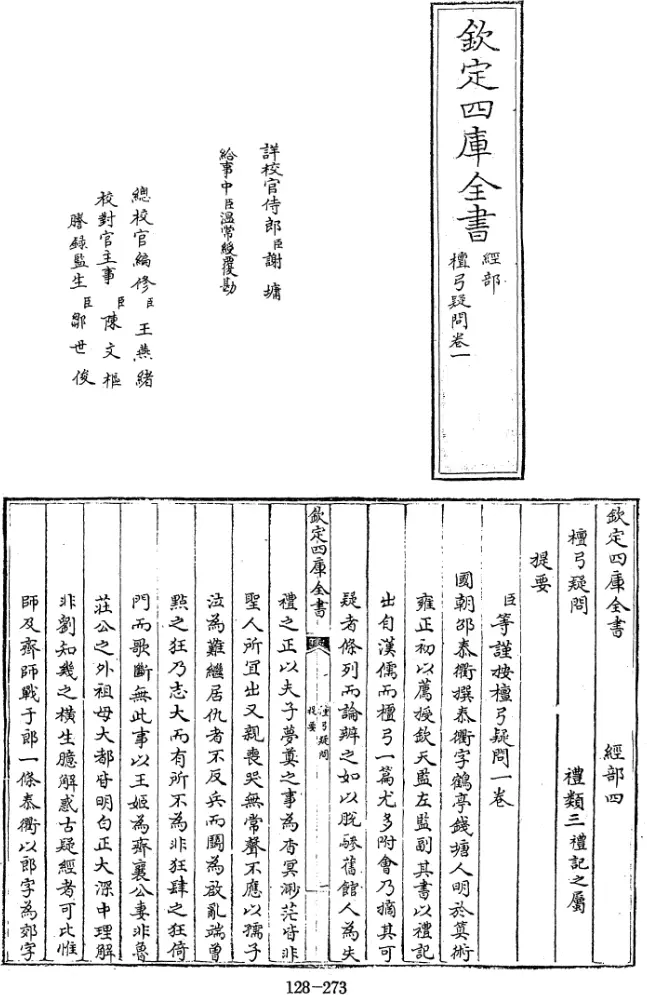 欽定四庫全書
經部
檀弓疑問卷一
詳校官侍郎臣謝墉
給事中臣溫常綬覆勘
總校官編修臣王燕緒
校對官主事臣陳文樞
謄錄監生臣鄒世俊
欽定四庫全書 經部四
檀弓疑問 禮類三禮記之屬
提要
臣等謹按檀弓疑問一卷
國朝邵泰衢撰泰衢字鶴亭錢塘人明於算術
雍正初以薦授欽天監左監副其書以禮記
出自漢儒而檀弓一篇尤多附會乃摘其可
疑者條列而論辨之如以脫驂舊館人為失
欽定四庫全書
檀弓疑問
提要
一
禮之正以夫子夢奠之事為杳冥渺茫皆非
聖人所宜出又親喪哭無常聲不應以孺子
泣為難繼居仇者不反兵而鬭為啟亂端曾
㸃之狂乃志大而有所不為非狂肆之狂倚
門而歌斷無此事以王姬為齊襄公妻非魯
莊公之外祖母大都皆明白正大深中理解
非劉知幾之橫生臆解惑古疑經者可比惟
師及齊師戰于郎一條泰衢以郎字為郊字
128-273